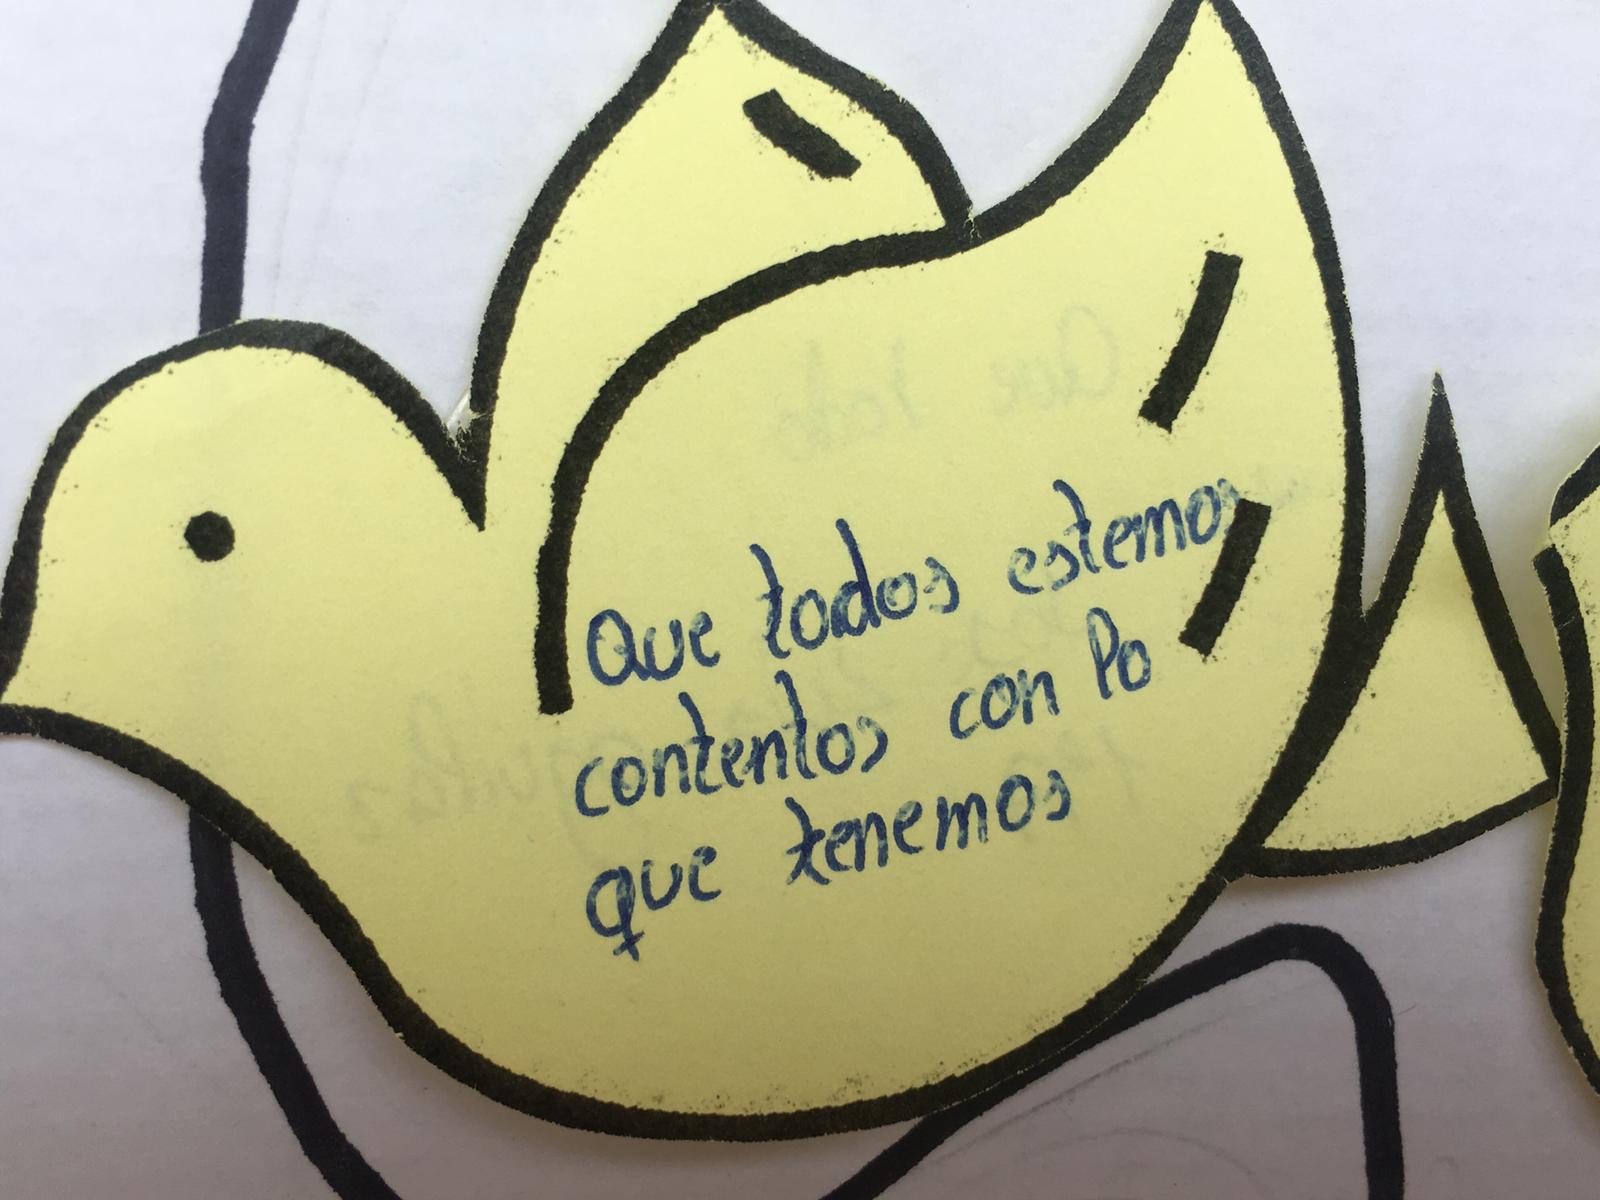 Que todos estemos
contentos con lo
que tenemos